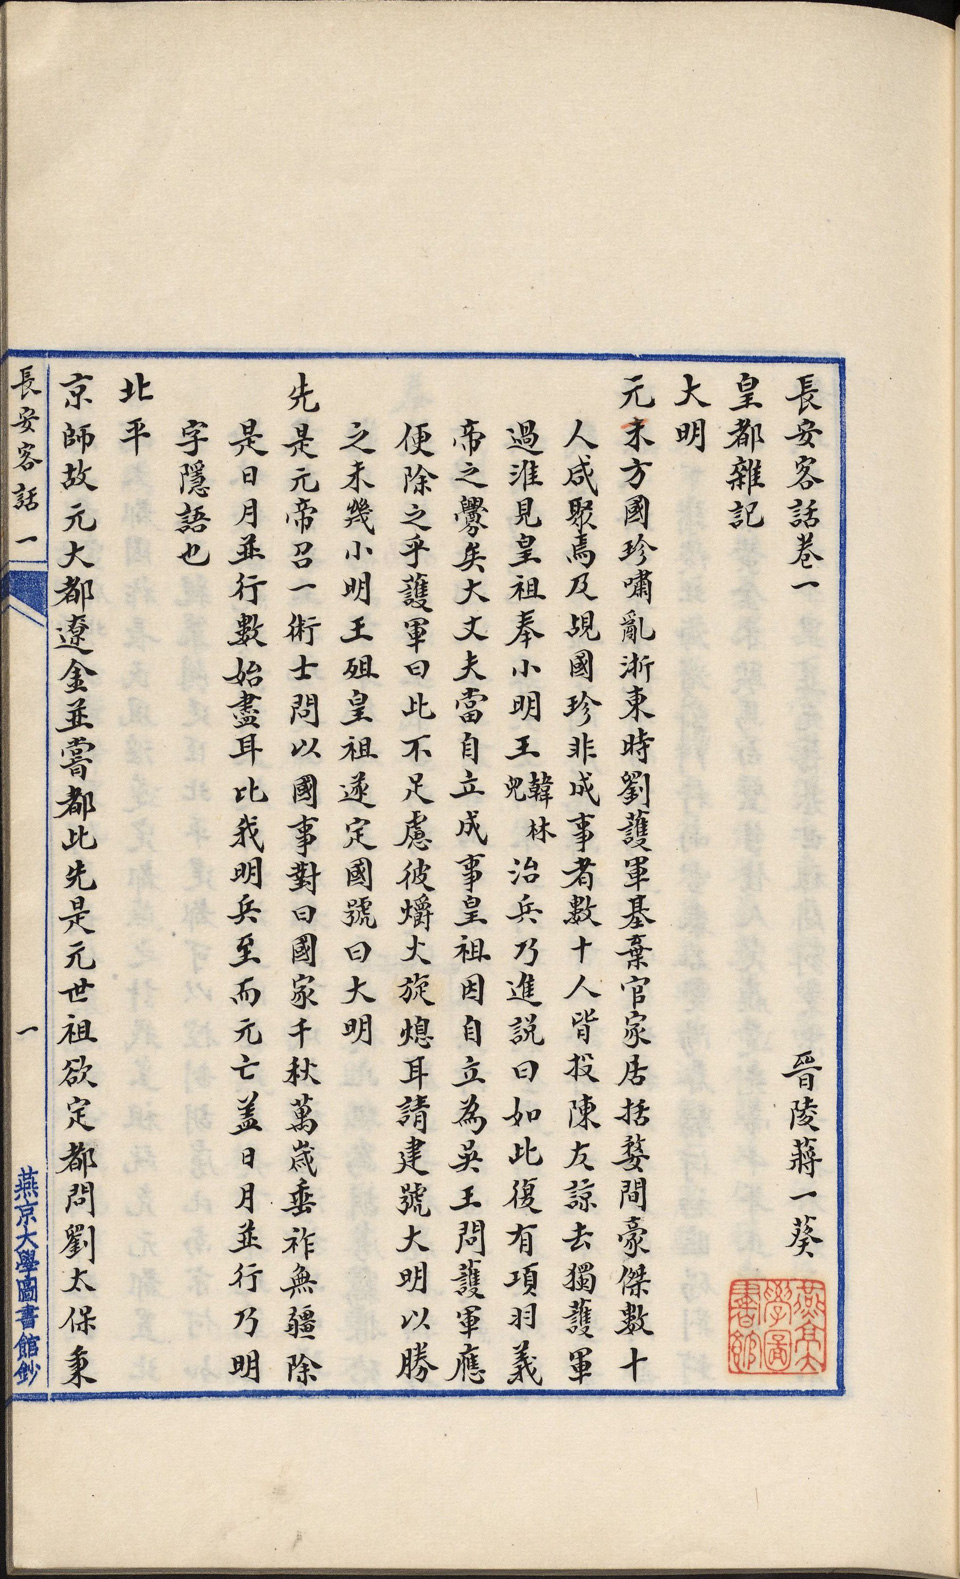 長安客話卷一 晉陵蔣一葵
皇都雜記
大明
元末方國珍嘯亂浙東時劉護軍基棄官家居括婺間豪傑數十
人咸聚焉及覘國珍非成事者數十人皆投陳友諒去獨護軍
過淮見皇祖奉小明王韓林兒治兵乃進説曰如此復有項羽義
帝之釁矣大丈夫當自立成事皇祖因自立為吳王問護軍應
便除之乎護軍曰此不足慮彼爝火旋熄耳請建號大明以勝
之未幾小明王殂皇祖遂定國號曰大明
先是元帝召一術士問以國事對曰國家千秋萬歲垂祚無疆除
是日月並行數始盡耳比我明兵至而元亡蓋日月並行乃明
字隱語也
北平
京師故元大都遼金並嘗都此先是元世祖欲定都問劉太保秉
長安客話 一
一
燕京大學圖書館鈔
燕京大學圖書館